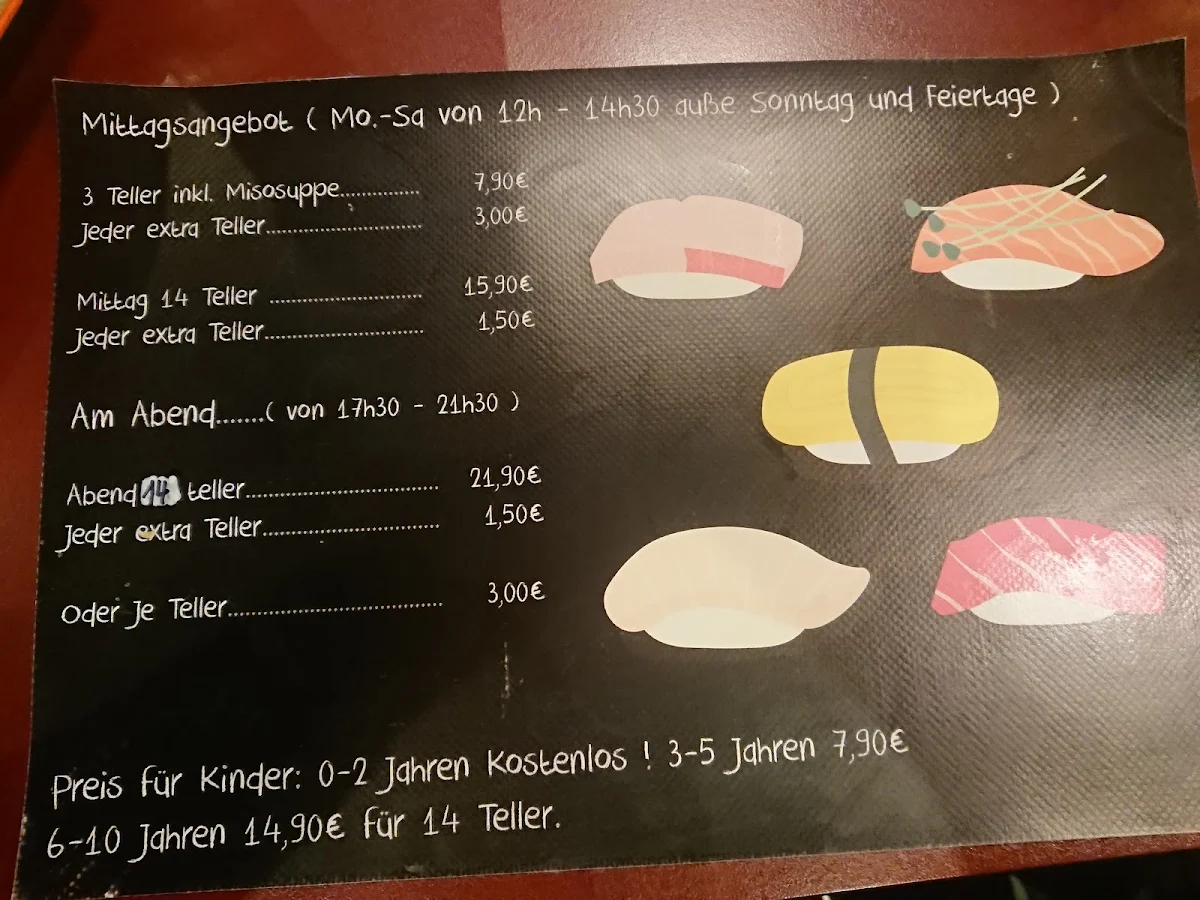 Mittagsangebot ( Mo.-Sa von 12h - 14h30 auße Sonntag und Feiertage )
3 Teller inkl. Misosuppe.............. 7,90€
Jeder extra Teller............................ 3,00€
Mittag 14 Teller ........................... 15,90€
Jeder extra Teller............................ 1,50€
Am Abend.......( von 17h30 - 21h30 )
Abend 14 teller................................. 21,90€
Jeder extra Teller............................... 1,50€
Oder Je Teller..................................... 3,00€
Preis für Kinder: 0-2 Jahren Kostenlos ! 3-5 Jahren 7,90€
6-10 Jahren 14,90€ für 14 Teller.